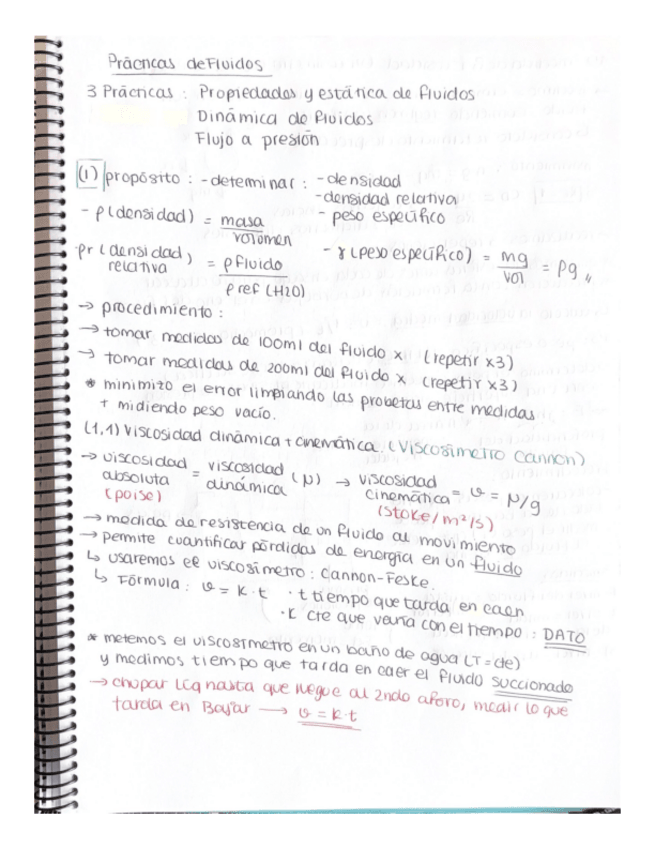 Prácticas de Fluidos
3 Prácticas : Propiedades y estática de fluidos
Dinámica de fluidos
Flujo a presión
(1) propósito : - determinar : - densidad
- densidad relativa
- peso específico
- ρ (densidad) = masa / volumen
- γ (peso específico) = mg / vol = ρg
ρr (densidad relativa) = ρ Fluido / ρ ref (H2O)
→ procedimiento :
→ tomar medidas de 100ml del fluido x (repetir x3)
→ tomar medidas de 200ml del fluido x (repetir x3)
* minimizo el error limpiando las probetas entre medidas
+ midiendo peso vacío.
(1,1) Viscosidad dinámica + cinemática. (Viscosímetro Cannon)
→ viscosidad absoluta = viscosidad dinámica (μ) → viscosidad cinemática = υ = μ/g
(poise) (stoke/m²/s)
→ medida de resistencia de un fluido al movimiento
→ permite cuantificar pérdidas de energía en un fluido
↳ usaremos el viscosímetro : Cannon-Feske.
↳ Fórmula : υ = k · t · t tiempo que tarda en caer
· K cte que varía con el tiempo : DATO
* metemos el viscosímetro en un baño de agua (T = cte)
y medimos tiempo que tarda en caer el fluido succionado
→ chupar lcq hasta que llegue al 2ndo aforo, medir lo que
tarda en Bajar → υ = k·t